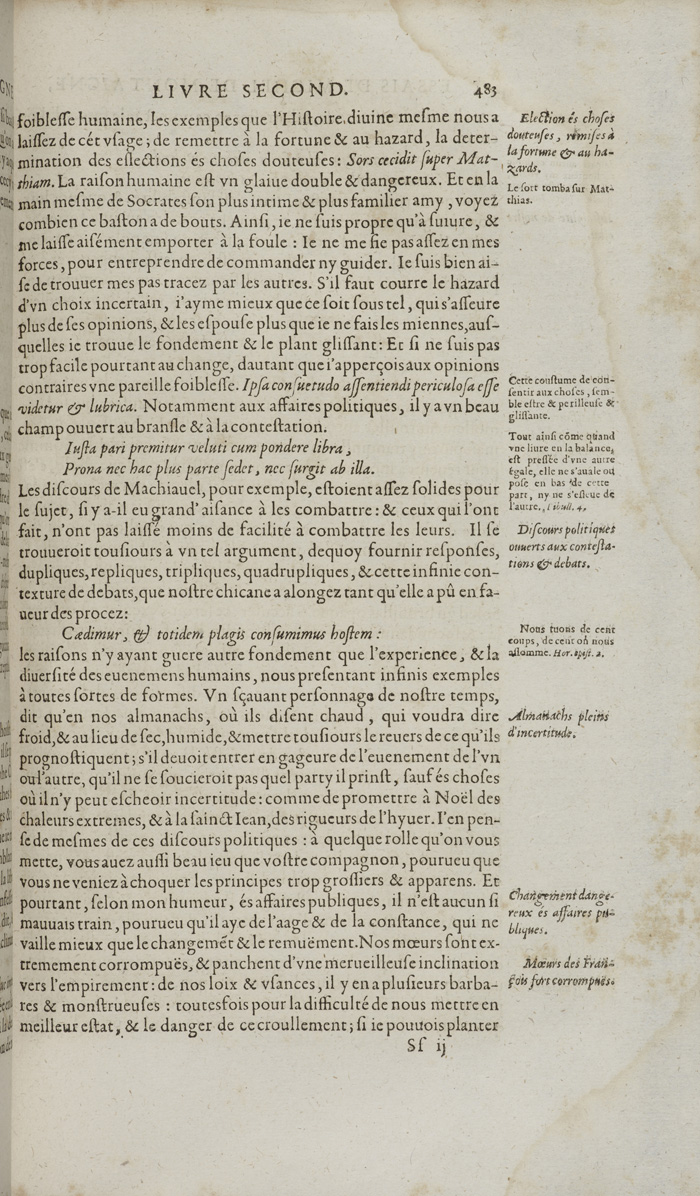 LIVRE SECOND. 483
foiblesse humaine, les exemples que l'Histoire diuine mesme nous a
laissez de cét vsage; de remettre à la fortune & au hazard, la deter-
mination des eslections és choses douteuses: Sors cecidit super Mat-
thiam. La raison humaine est vn glaiue double & dangereux. Et en la
main mesme de Socrates son plus intime & plus familier amy, voyez
combien ce baston a de bouts. Ainsi, ie ne suis propre qu'à suiure, &
me laisse aisément emporter à la foule: Ie ne me fie pas assez en mes
forces, pour entreprendre de commander ny guider. Ie suis bien ai-
se de trouuer mes pas tracez par les autres. S'il faut courre le hazard
d'vn choix incertain, i'ayme mieux que ce soit sous tel, qui s'asseure
plus de ses opinions, & les espouse plus que ie ne fais les miennes, aus-
quelles ie trouue le fondement & le plant glissant: Et si ne suis pas
trop facile pourtant au change, dautant que i'apperçois aux opinions
contraires vne pareille foiblesse. Ipsa consuetudo assentiendi periculosa esse
videtur & lubrica. Notamment aux affaires politiques, il y a vn beau
champ ouuert au bransle & à la contestation.
Iusta pari premitur veluti cum pondere libra,
Prona nec hac plus parte sedet, nec surgit ab illa.
Les discours de Machiauel, pour exemple, estoient assez solides pour
le sujet, si y a-il eu grand' aisance à les combattre: & ceux qui l'ont
fait, n'ont pas laissé moins de facilité à combattre les leurs. Il se
trouueroit tousiours à vn tel argument, dequoy fournir responses,
dupliques, repliques, tripliques, quadrupliques, & cette infinie con-
texture de debats, que nostre chicane a alongez tant qu'elle a pû en fa-
ueur des procez:
Cædimur, & totidem plagis consumimus hostem:
les raisons n'y ayant guere autre fondement que l'experience, & la
diuersité des euenemens humains, nous presentant infinis exemples
à toutes sortes de formes. Vn sçauant personnage de nostre temps,
dit qu'en nos almanachs, où ils disent chaud, qui voudra dire
froid, & au lieu de sec, humide, & mettre tousiours le reuers de ce qu'ils
prognostiquent; s'il deuoit entrer en gageure de l'euenement de l'vn
ou l'autre, qu'il ne se soucieroit pas quel party il prinst, sauf és choses
où il n'y peut escheoir incertitude: comme de promettre à Noël des
chaleurs extremes, & à la sainct Iean, des rigueurs de l'hyuer. I'en pen-
se de mesmes de ces discours politiques: à quelque rolle qu'on vous
mette, vous auez aussi beau ieu que vostre compagnon, pourueu que
vous ne veniez à choquer les principes trop grossiers & apparens. Et
pourtant, selon mon humeur, és affaires publiques, il n'est aucun si
mauuais train, pourueu qu'il aye de l'aage & de la constance, qui ne
vaille mieux que le changemẽt & le remuëment. Nos mœurs sont ex-
tremement corrompuës, & panchent d'vne merueilleuse inclination
vers l'empirement: de nos loix & vsances, il y en a plusieurs barba-
res & monstrueuses: toutesfois pour la difficulté de nous mettre en
meilleur estat, & le danger de ce croullement; si ie pouuois planter
Sf ij
Election és choses
douteuses, remises à
la fortune & au ha-
zards.
Le sort tomba sur Mat-
thias.
Cette coustume de con-
sentir aux choses, sem-
ble estre & perilleuse &
glissante.
Tout ainsi cõme quand
vne liure en la balance,
est pressée d'vne autre
égale, elle ne s'auale ou
pose en bas de cette
part, ny ne s'esleue de
l'autre., Tibull. 4.
Discours politiques
ouuerts aux contesta-
tions & debats.
Nous tuons de cent
coups, de cent on nous
assomme. Hor. epist. 2.
Almanachs pleins
d'incertitude.
Changement dange-
reux és affaires pu-
bliques.
Mœurs des Fran-
çois fort corrompuës.